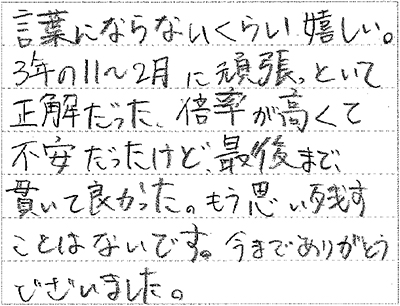 言葉にならないくらい嬉しい。
3年の11〜2月に頑張っといて
正解だった、倍率が高くて
不安だったけど、最後まで、
貫いて良かった。もう思い残す
ことはないです。今までありがとう
ございました。